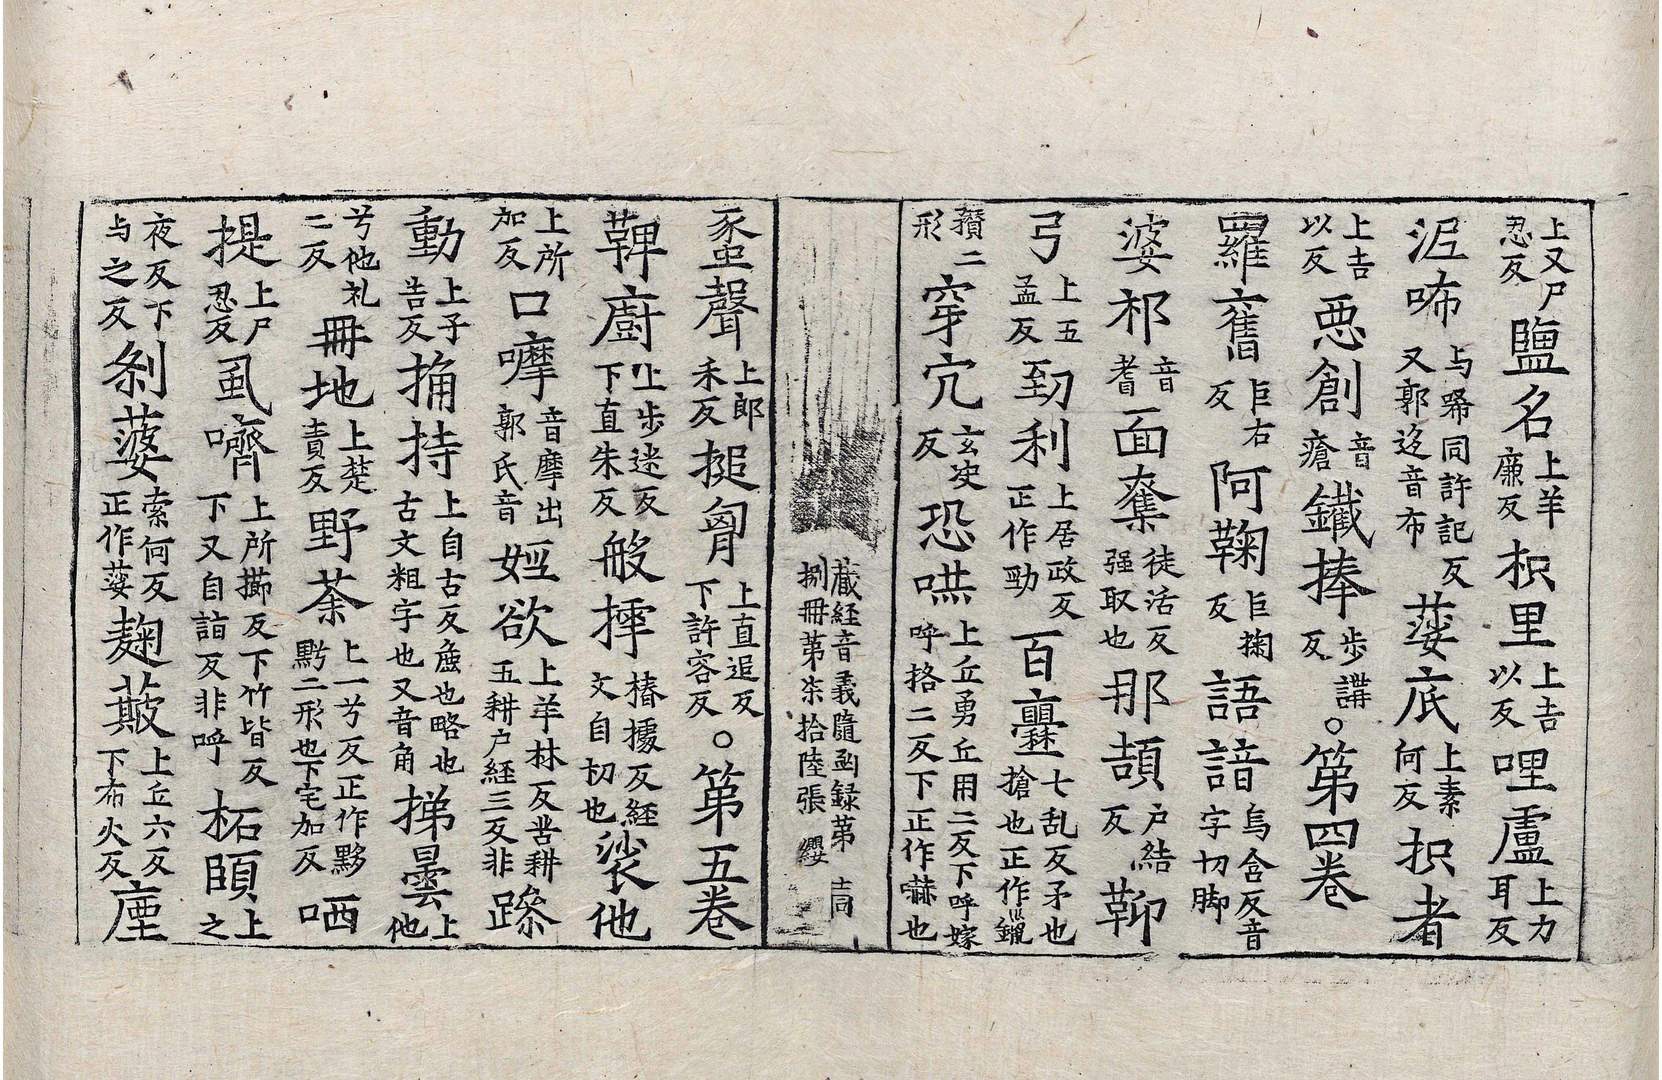 上叉尸忍反鹽名上羊廉反枳里上吉以反哩盧上力耳反
泥咘与唏同許記反又郭迻音布蔢底上素何反抧者
上吉以反惡創音瘡鐵捧步講反。第四卷
羅舊巨右反阿鞠巨掬反語諳烏含反音字切脚
婆祁音耆面奪徒活反强取也那頡戶結反鞞
弓上五孟反勁利上居政反正作勁百㸑七乱反矛也搶也正作鑹
穳二形穿穴玄决反恐哄上丘勇丘用二反下呼嫁呼格二反下正作嚇也
藏經音義隨函録第捌冊第柒拾陸張 纓
蠡聲上郎禾反搥匈上直追反下許容反。第五卷
鞞廚上步迷反下直朱反般摢樁據反經文自切也裟他
上所加反口嚤音摩出郭氏音婬欲上羊林反苦耕五耕户經三反非蹂
動上子告反捔持上自古反麁也略也古文粗字也又音角挮曇上他
兮他礼二反冊地上楚責反野荼上一兮反正作黟黔二形也下宅加反哂
提上尸忍反虱嚌上所擳反下竹皆反下又自詣反非呼柘頤上之
夜反下与之反剎蔢索何反正作蔢麹蔽上丘六反下布火反塵